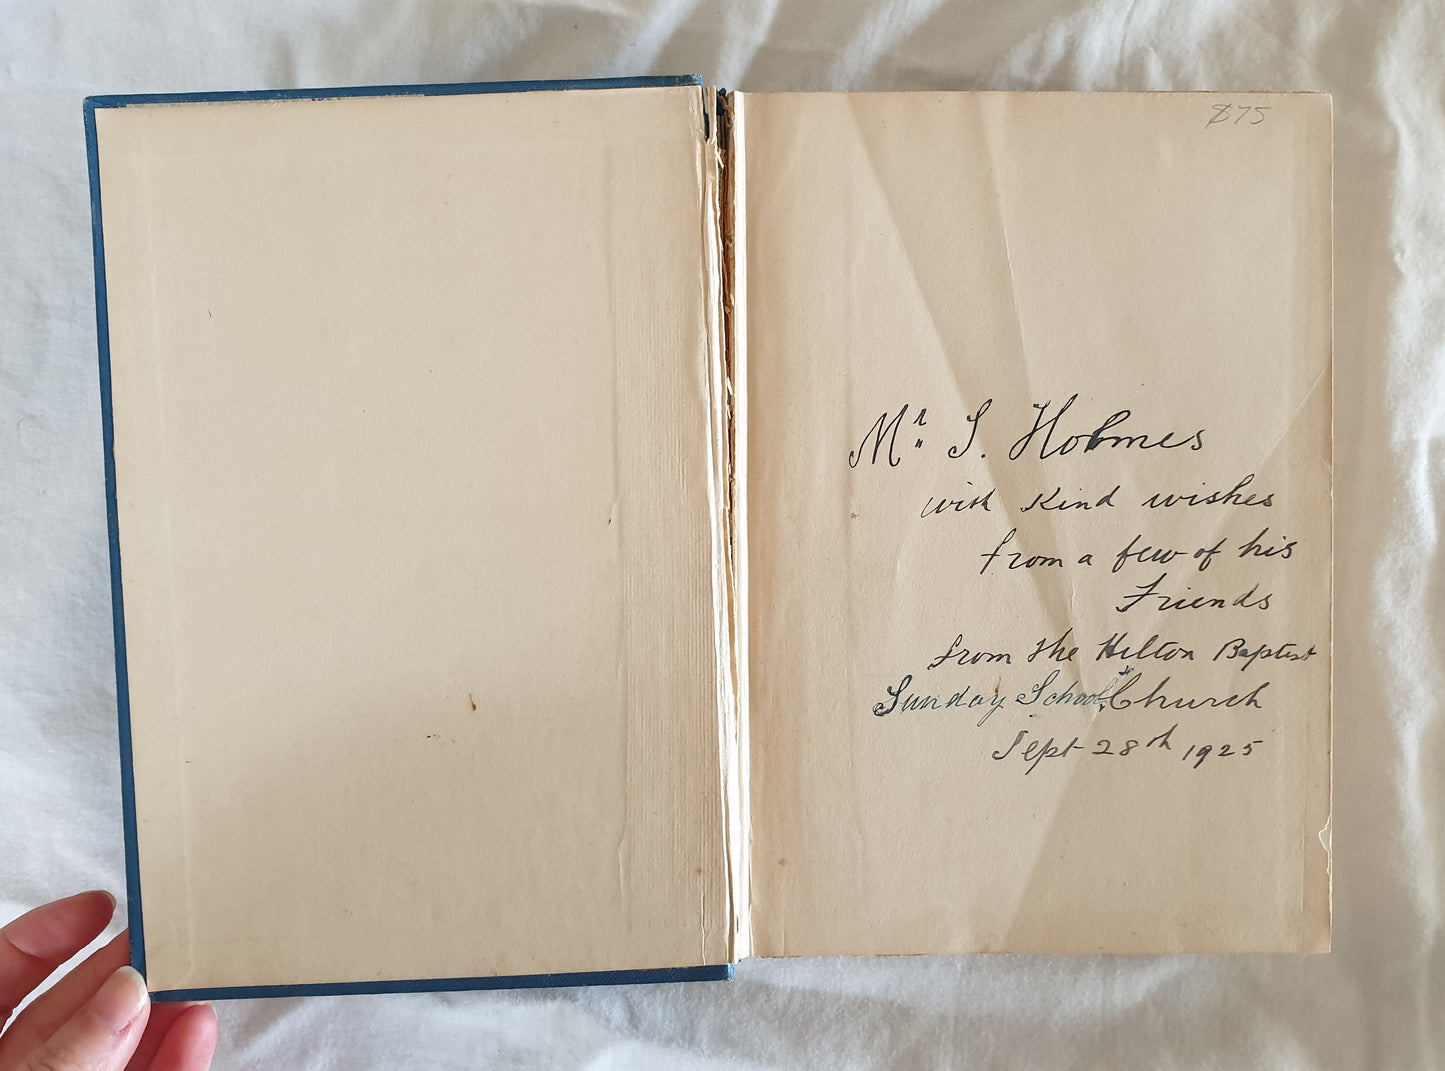 $75
Mr. S. Holmes
with Kind wishes
from a few of his
Friends
from the Hilton Baptist
Sunday School & Church
Sept 28th 1925